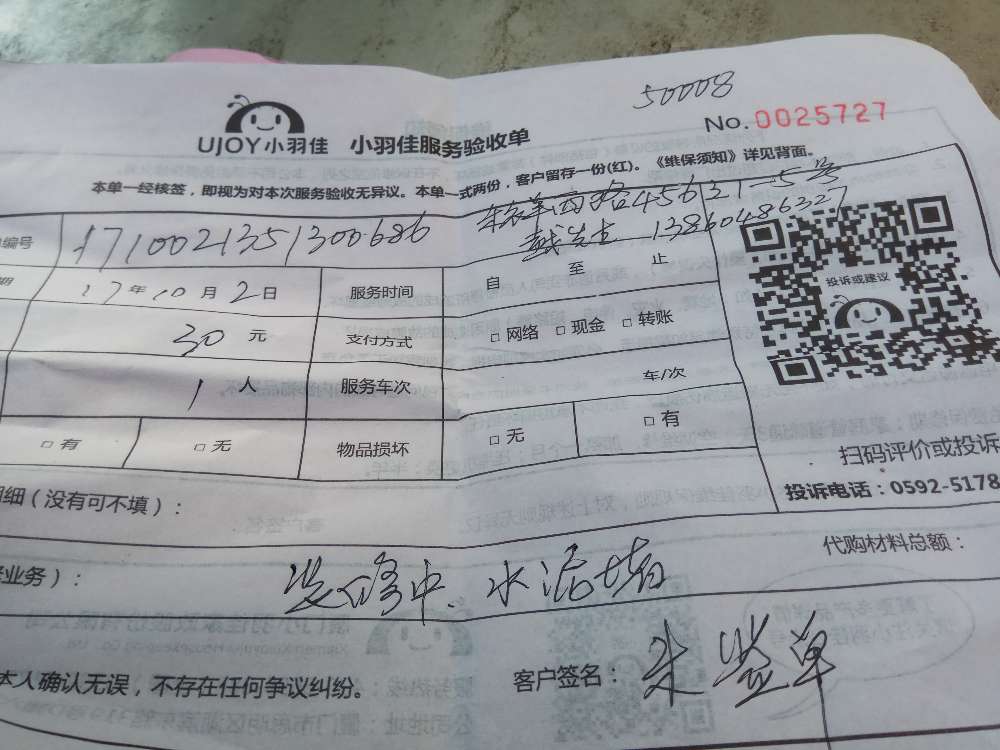 50008
No. 0025727
UJOY小羽佳 小羽佳服务验收单
本单一经核签，即视为对本次服务验收无异议。本单一式两份，客户留存一份(红)。《维保须知》详见背面。
西路456号21-5号
编号 1710021351300686 戴先生 13860486327
期 17年10月2日 服务时间 自 至 止
投诉或建议
30元 支付方式 □网络 □现金 □转账
1人 服务车次 车/次
□有 □无 物品损坏 □无 □有
扫码评价或投诉
投诉电话：0592-5178
明细（没有可不填）：
代购材料总额：
业务）： 装修中、水泥堵
本人确认无误，不存在任何争议纠纷。 客户签名： 未签单